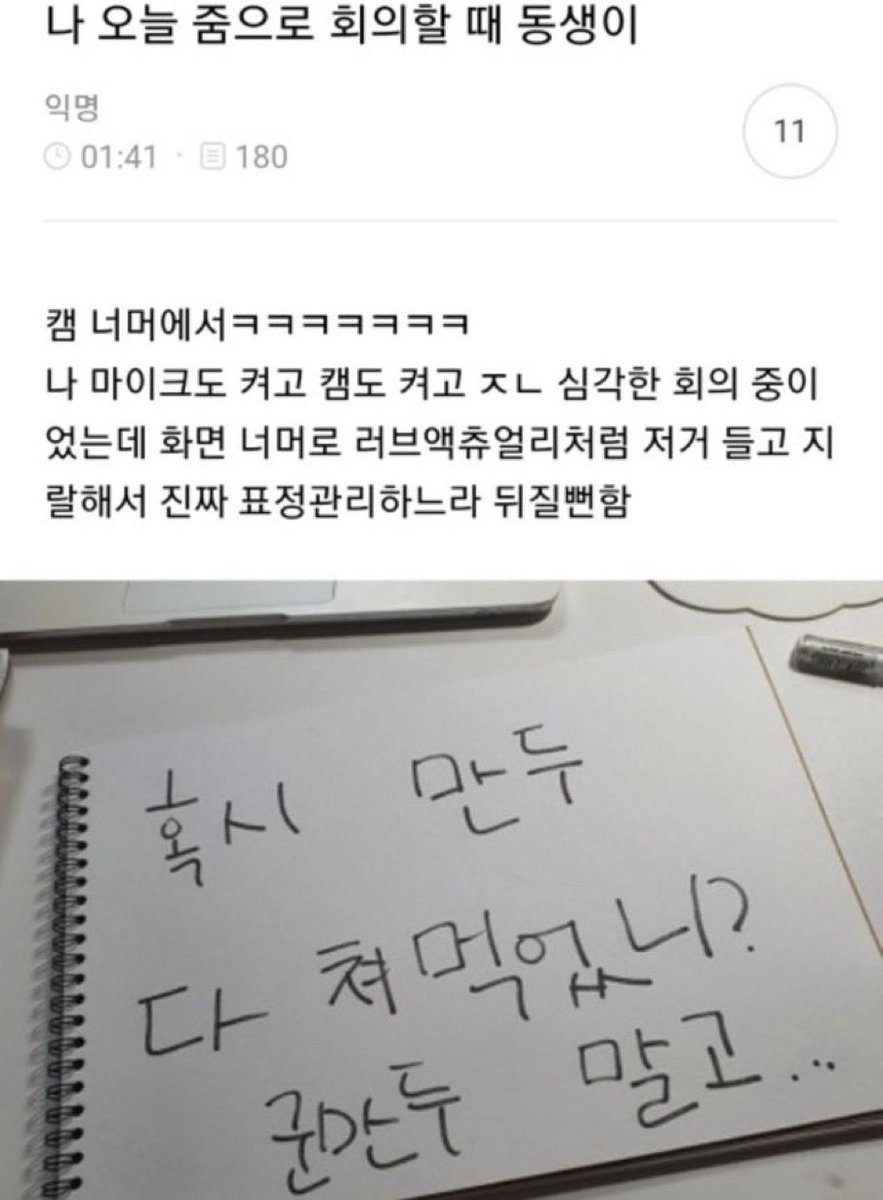 나 오늘 줌으로 회의할 때 동생이
익명
01:41 · 180
11
캠 너머에서ㅋㅋㅋㅋㅋㅋㅋ
나 마이크도 켜고 캠도 켜고 ㅈㄴ 심각한 회의 중이
었는데 화면 너머로 러브액츄얼리처럼 저거 들고 지
랄해서 진짜 표정관리하느라 뒤질뻔함
혹시 만두
다 쳐먹었니?
군만두 말고...